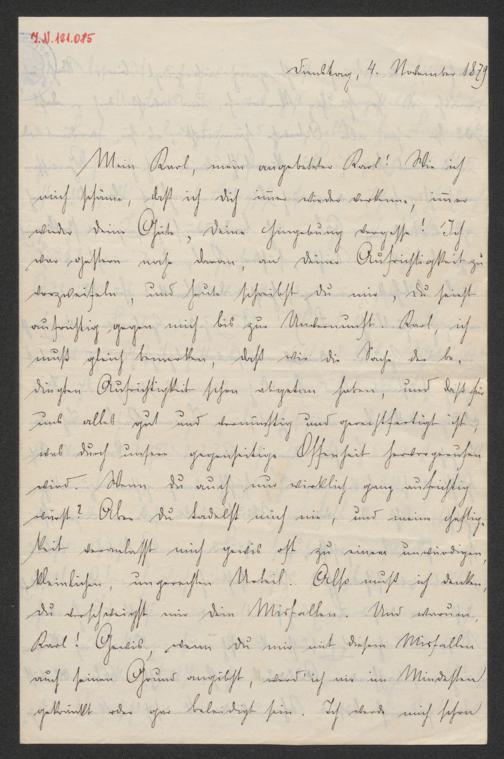 J.N. 121.085
Dienstag, 4. November 1879
Mein Karl, mein angebeteter Karl! Wie ich
mich schäme, daß ich Dich immer wieder verkenne, immer
wieder deine Güte, deine Hingebung vergesse! Ich
war gestern nahe daran, an Deiner Aufrichtigkeit zu
verzweifeln, und heute schreibst Du mir, Du seist
aufrichtig gegen mich bis zur Unvernunft. Karl, ich
muß gleich bemerken, daß wir die Sache der be-
dingten Aufrichtigkeit schon abgetan haben, und daß für
uns alles gut und vernünftig und gerechtfertigt ist,
was durch unsere gegenseitige Offenheit hervorgerufen
wird. Wenn du auch nur wirklich ganz aufrichtig
wärst? Aber du tadelst mich nie, und meine Heftig-
keit veranlasst mich gewis oft zu einem unwürdigen,
kleinlichen, ungerechten Urteil. Also muß ich denken,
du verschweigst mir dein Misfallen. Und warum,
Karl! Gewis, wenn Du mir mit diesem Misfallen
auch seinen Grund angibst, werd' ich nie im Mindesten
gekränkt oder gar beleidigt sein. Ich werde mich schon